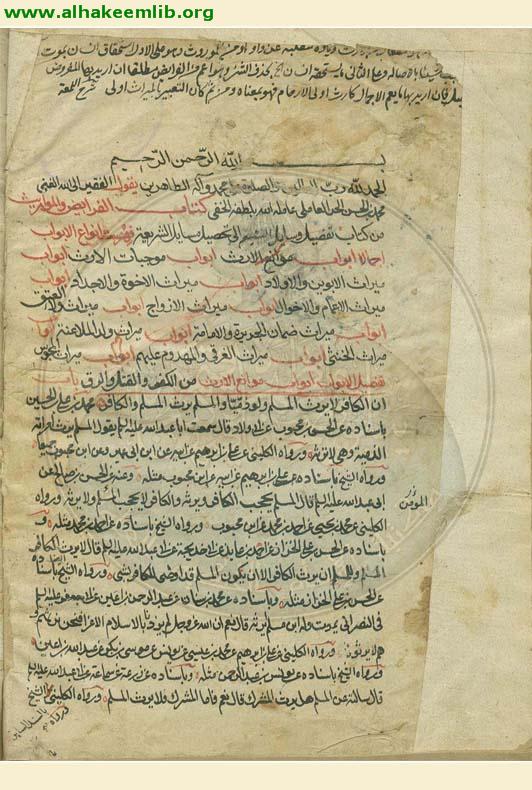 www.alhakeemlib.org
بسم الله الرحمن الرحيم
الحمد لله رب العالمين والصلوة على محمد وآله الطاهرين يقول الفقير الى الله الغنى
محمد بن الحسن الحر العاملى عامله الله بلطفه الخفى كتاب الفرايض والمواريث
من كتاب تفصيل وسايل الشيعة الى تحصيل مسايل الشريعة فهرست انواع الابواب
اجمالا ابواب موانع الارث ابواب موجبات الارث ابواب
ميراث الابوين والاولاد ابواب ميراث الاخوة والاجداد ابواب
ميراث الاعمام والاخوال ابواب ميراث الازواج ابواب ميراث ولاء العتق
ابواب ميراث ضمان الجريرة والامامة ابواب ميراث ولد الملاعنة ابواب
ميراث الخنثى ابواب ميراث الغرقى والمهدوم عليهم ابواب ميراث المجوس
تفصيل الابواب ابواب موانع الارث من الكفر والقتل والرق باب
ان الكافر لا يرث المسلم ولو ذميا والمسلم يرث المسلم والكافر محمد بن على بن الحسين
باسناده عن الحسن بن محبوب عن ابى ولاد قال سمعت ابا عبد الله عليه السلم يقول المسلم يرث امرأته
الذمية وهى لا ترثه ورواه الكلينى عن على بن ابرهيم عن ابيه عن ابن ابى عمير وعن ابن محبوب جميعا
ورواه الشيخ باسناده عن على بن ابرهيم عن ابيه عن ابن محبوب مثله وعنه عن الحسن بن صالح عن
ابى عبد الله عليه السلم قال المسلم يحجب الكافر ويرثه والكافر لا يحجب المسلم ولا يرثه ورواه
المؤمن
الكلينى عن محمد بن يحيى عن احمد بن محمد عن ابن محبوب ورواه الشيخ باسناده عن احمد بن محمد مثله و
باسناده عن الحسن بن على الخزاز عن احمد بن عائذ عن ابى خديجة عن ابى عبد الله عليه السلم قال لا يرث الكافر
المسلم وللمسلم ان يرث الكافر الا ان يكون المسلم قد اوصى للكافر بشىء ورواه الشيخ باسناده
عن الحسن بن على الخزاز مثله وباسناده عن محمد بن سنان عن عبد الرحمن بن اعين عن ابى جعفر عليه السلم
فى النصرانى يموت وله ابن مسلم يرثه قال نعم ان الله عز وجل لم يزدنا بالاسلام الا عزا فنحن نرثهم و
هم لا يرثونا ورواه الكلينى عن على بن ابرهيم عن محمد بن عيسى عن يونس عن موسى بن بكر عن عبد الله بن اعين
ورواه الشيخ باسناده عن يونس عن عبد الرحمن مثله وباسناده عن زرعة عن سماعة عن ابى عبد الله عليه السلم
قال سألته عن المسلم هل يرث المشرك قال نعم فاما المشرك فلا يرث المسلم ورواه الكلينى